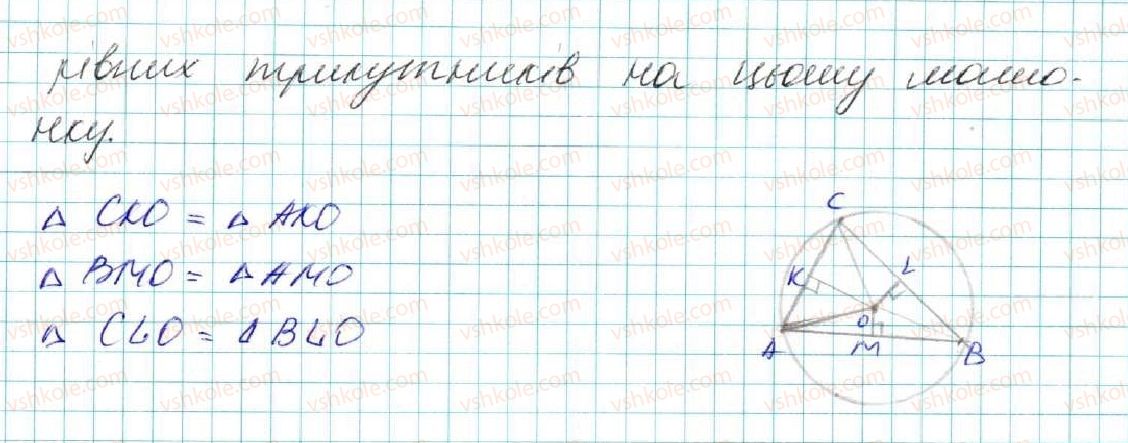 рівних трикутників на цьому малю-
нку.
△ CKO = △ AKO
△ BMO = △ AMO
△ CLO = △ BLO
C
K
L
O
A
M
B
vshkole.com